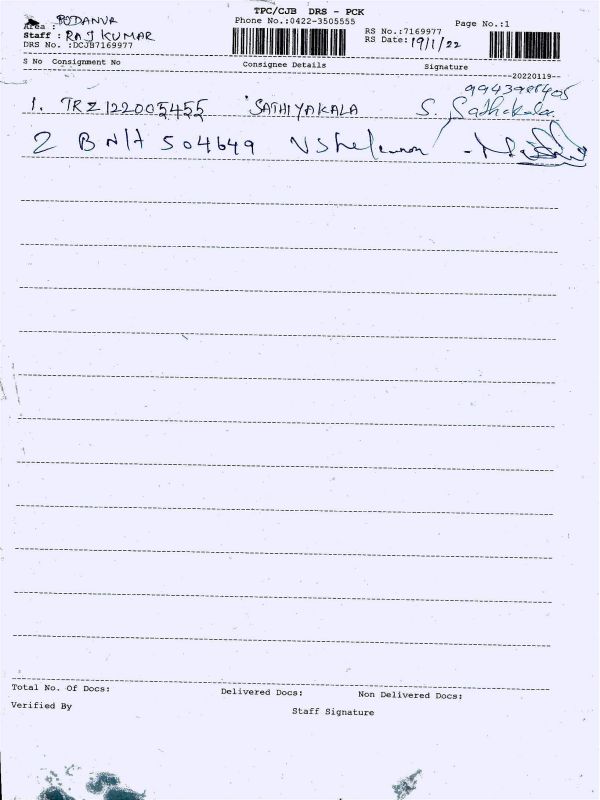 TPC/CJB DRS - PCK
Area : PODANUR Phone No.:0422-3505555 Page No.:1
Staff : RAJ KUMAR RS No.:7169977
DRS No. :DCJB7169977 RS Date: 19/1/22
S No Consignment No Consignee Details Signature
--20220119--
9943988405
1. TRZ122005455 SATHIYAKALA S. Sathikala
2 BNH 504649
Total No. Of Docs: Delivered Docs: Non Delivered Docs:
Verified By Staff Signature